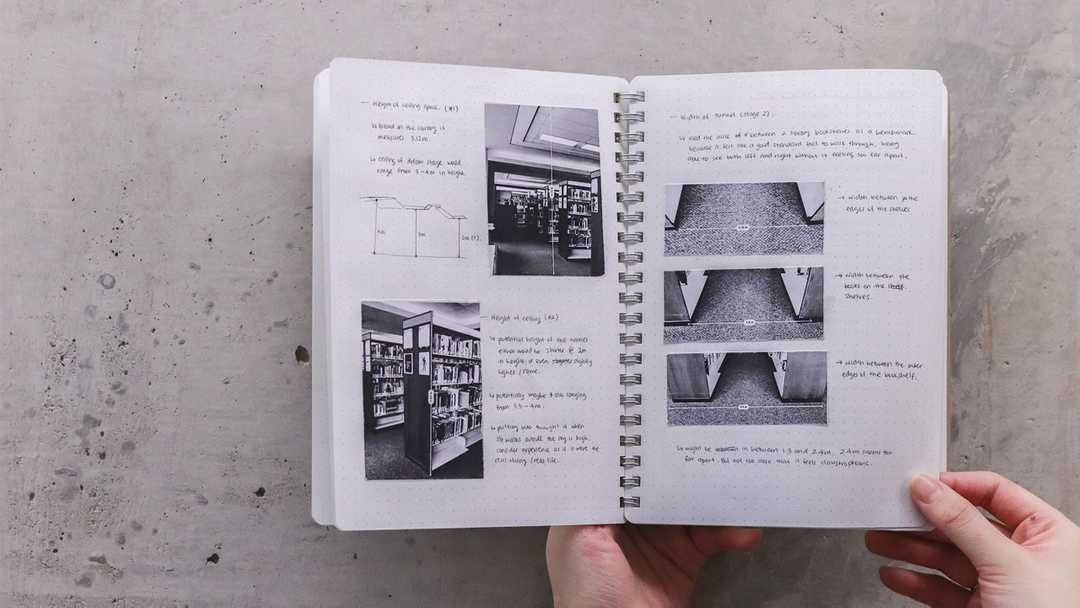 — Height of ceiling space. (#1)
↳ Based on the library it
measures 3.12m.
↳ ceiling of dream stage would
range from 3-4m in height.
3m
— Height of ceiling (#2)
↳ potential height of the
either would be shorter @ 2m
in height, or even slightly
higher / same.
↳ potentially maybe ranging
from 3.5 - 4m.
↳ putting into thought of when
outside the is high,
consider experience as if it were the
real life.
— Width of Tunnel (stage 2).
↳ used the width of between 2 library bookshelves as a benchmark
because it felt like a good standard to walk through, being
able to see both left and right without it feeling too far apart.
→ width between the
edges of the shelves
→ width between the
books on the
shelves.
→ width between the outer
edges of the bookshelf.
↳ might be in between 1.3 and 2.4m. 2.4m seems too
far apart. But not too close that it feels claustrophobic.